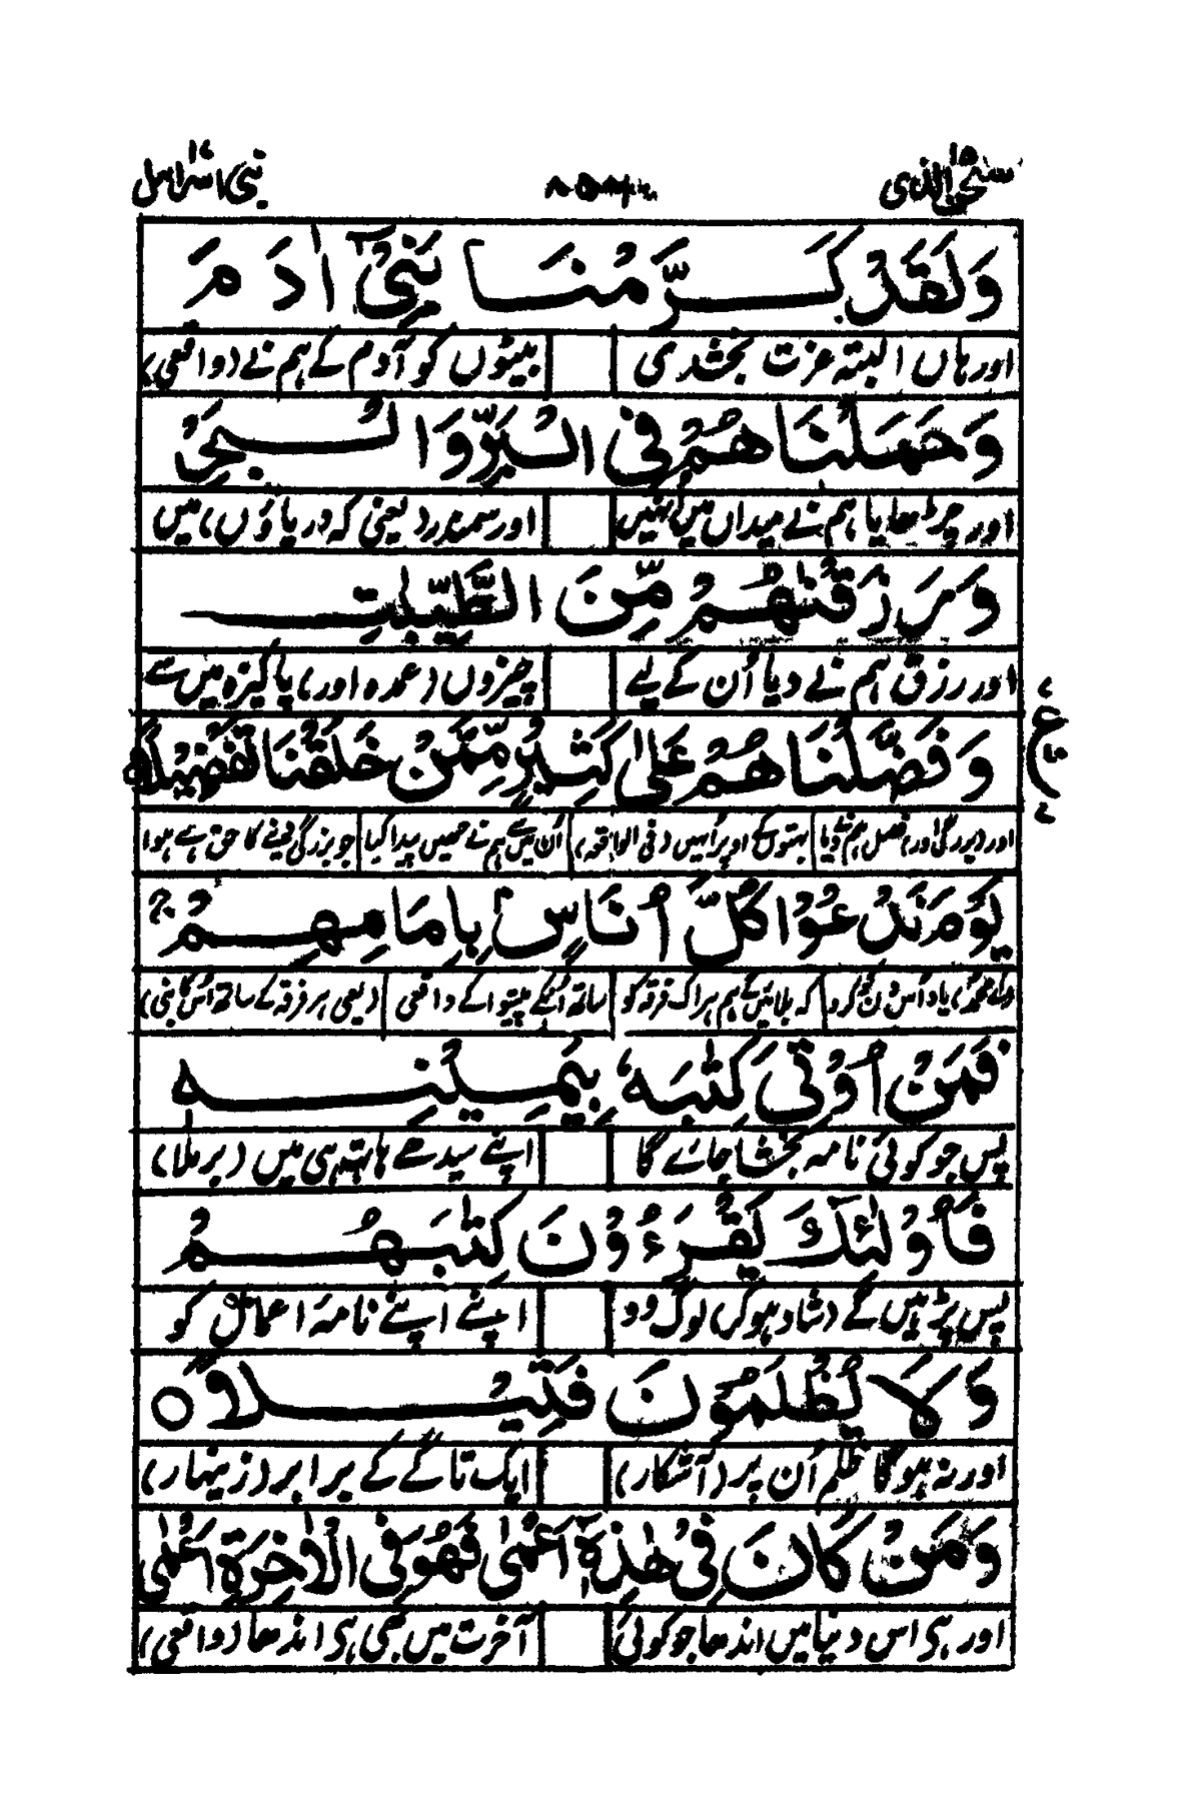 سبحٰن الذی ۱۵ بنی اسراءیل ۱۷
وَلَقَدْ كَرَّمْنَا بَنِیْۤ اٰدَمَ
اور ہاں البتہ عزت بخشدی بیٹوں کو آدم کے ہم نے (واقعی)
وَحَمَلْنَاهُمْ فِی الْبَرِّ وَالْبَحْرِ
اور چڑھایا ہم نے میداں میں اُنہیں اور سمندر (یعنی کہ دریاؤں) میں
وَرَزَقْنٰهُمْ مِّنَ الطَّیِّبٰتِ
اور رزق ہم نے دیا اُن کے لیے چیزوں (عمدہ اور) پاکیزہ میں سے
وَفَضَّلْنَاهُمْ عَلٰی كَثِیْرٍ مِّمَّنْ خَلَقْنَا تَفْضِیْلًا
اور (بزرگی اور) فضل ہم نے دیا بہتوں کے اوپر اُنہیں (فی الواقعہ) اُن میں سے ہم نے جنھیں پیدا کیا جو بزرگی دینے کا حق ہے ہوا
یَوْمَ نَدْعُوْا كُلَّ اُنَاسٍۭ بِاِمَامِهِمْ
یاد اُس دن کو کرو کہ بلائیں گے ہم ہر اک فرقہ کو ساتھ اُنکے پیشوا کے واقعی (یعنی ہر فرقہ کے ساتھ اُس کا نبی)
فَمَنْ اُوْتِیَ كِتٰبَهٗ بِیَمِیْنِهٖ
پس جو کوئی نامہ بخشا جائے گا اپنے سیدھے ہاتھ ہی میں (برملا)
فَاُولٰٓئِكَ یَقْرَءُوْنَ كِتٰبَهُمْ
پس پڑہیں گے (شاد ہوکر) لوگ وہ اپنے اپنے نامۂ اعمال کو
وَلَا یُظْلَمُوْنَ فَتِیْلًا ○
اور نہ ہوگا ظلم اُن پر (آشکار) ایک تاگے کے برابر (زینہار)
وَمَنْ كَانَ فِیْ هٰذِهٖۤ اَعْمٰی فَهُوَ فِی الْاٰخِرَةِ اَعْمٰی
اور ہی اس دنیا میں اندھا جو کوئی آخرت میں بھی ہی اندھا (واقعی)